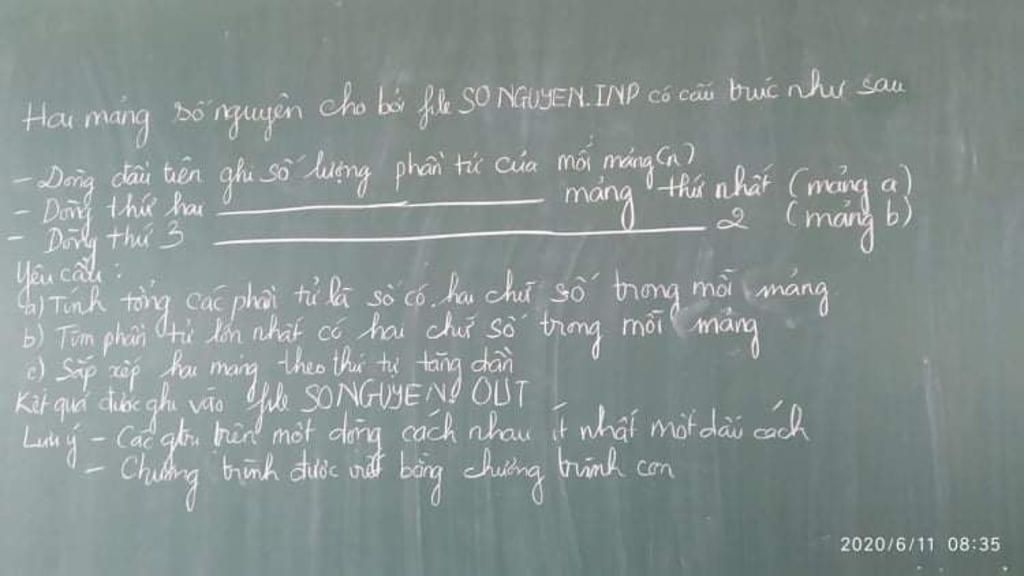 Hai mảng số nguyên cho bởi file SONGUYEN.INP có cấu trúc như sau
- Dòng đầu tiên ghi số lượng phần tử của mỗi mảng (n)
- Dòng thứ hai ____ mảng thứ nhất (mảng a)
- Dòng thứ 3 ____ 2 (mảng b)
Yêu cầu:
a) Tính tổng các phần tử là số có hai chữ số trong mỗi mảng
b) Tìm phần tử lớn nhất có hai chữ số trong mỗi mảng
c) Sắp xếp hai mảng theo thứ tự tăng dần
Kết quả được ghi vào file SONGUYEN.OUT
Lưu ý - Các gtrị trên một dòng cách nhau ít nhất một dấu cách
- Chương trình được viết bằng chương trình con
2020/6/11 08:35